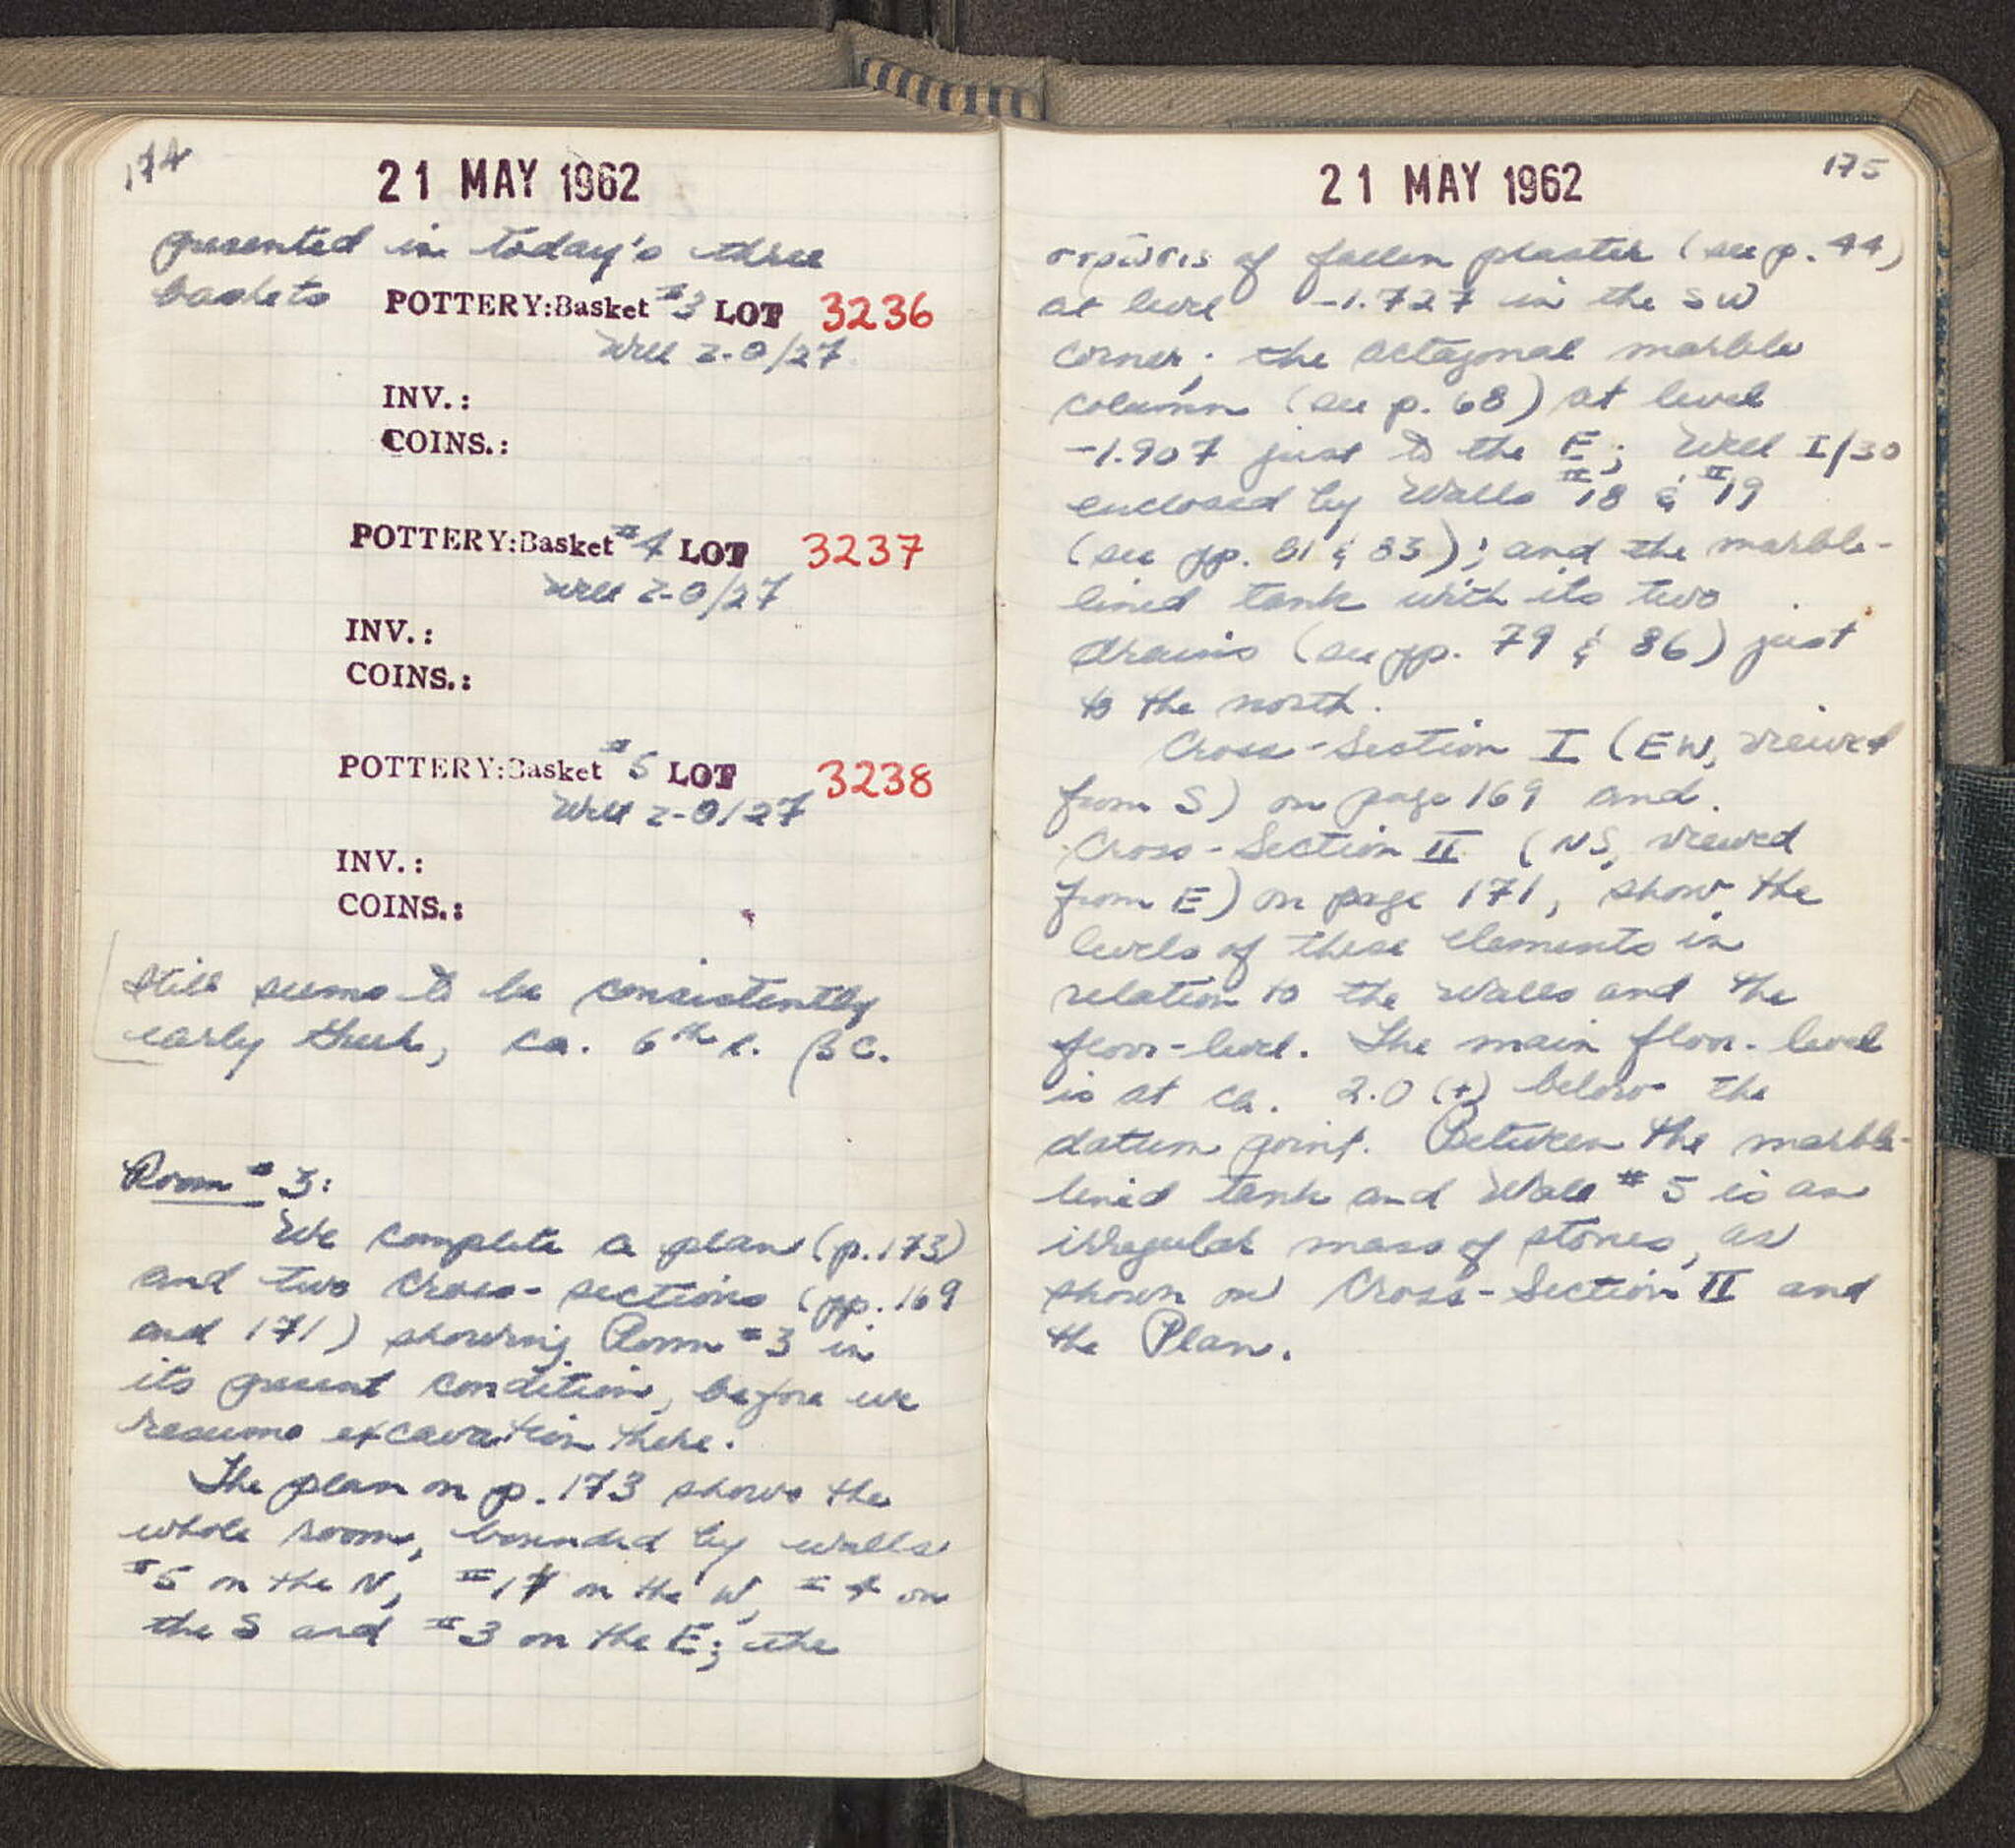 174
21 MAY 1962
presented in today's three
baskets POTTERY:Basket #3 LOT 3236
Well Z-Θ/27
INV.:
COINS.:
POTTERY:Basket #4 LOT 3237
Well Z-Θ/27
INV.:
COINS.:
POTTERY:Basket #5 LOT 3238
Well Z-Θ/27
INV.:
COINS.:
still seems to be consistently
early Greek, ca. 6th c. BC.
Room #3:
We complete a plan (p. 173)
and two cross-sections (pp. 169
and 171) showing Room #3 in
its present condition, before we
resume excavation there.
The plan on p. 173 shows the
whole room, bounded by walls
#5 on the N, #17 on the W, #4 on
the S and #3 on the E; the
175
21 MAY 1962
στρῶσις of fallen plaster (see p. 44)
at level -1.727 in the SW
corner; the octagonal marble
column (see p. 68) at level
-1.907 just to the E; Well I/30
enclosed by Walls #18 & #19
(see pp. 81 & 83); and the marble-
lined tank with its two
drains (see pp. 79 & 86) just
to the north.
Cross-Section I (EW, viewed
from S) on page 169 and
Cross-Section II (NS, viewed
from E) on page 171, show the
levels of these elements in
relation to the walls and the
floor-level. The main floor-level
is at ca. 2.0 (+) below the
datum point. Between the marble-
lined tank and Wall #5 is an
irregular mass of stones, as
shown on Cross-Section II and
the Plan.